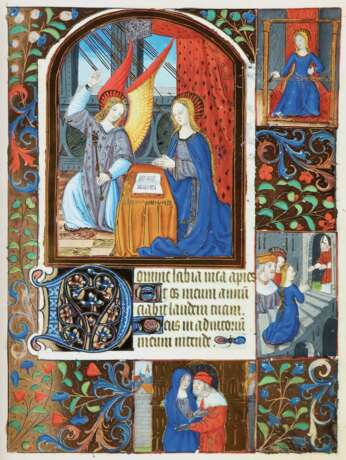 Domine labia mea apries
Et os meum annu
ciabit laudem tuam.
Deus in adiutoriu
meum intende.